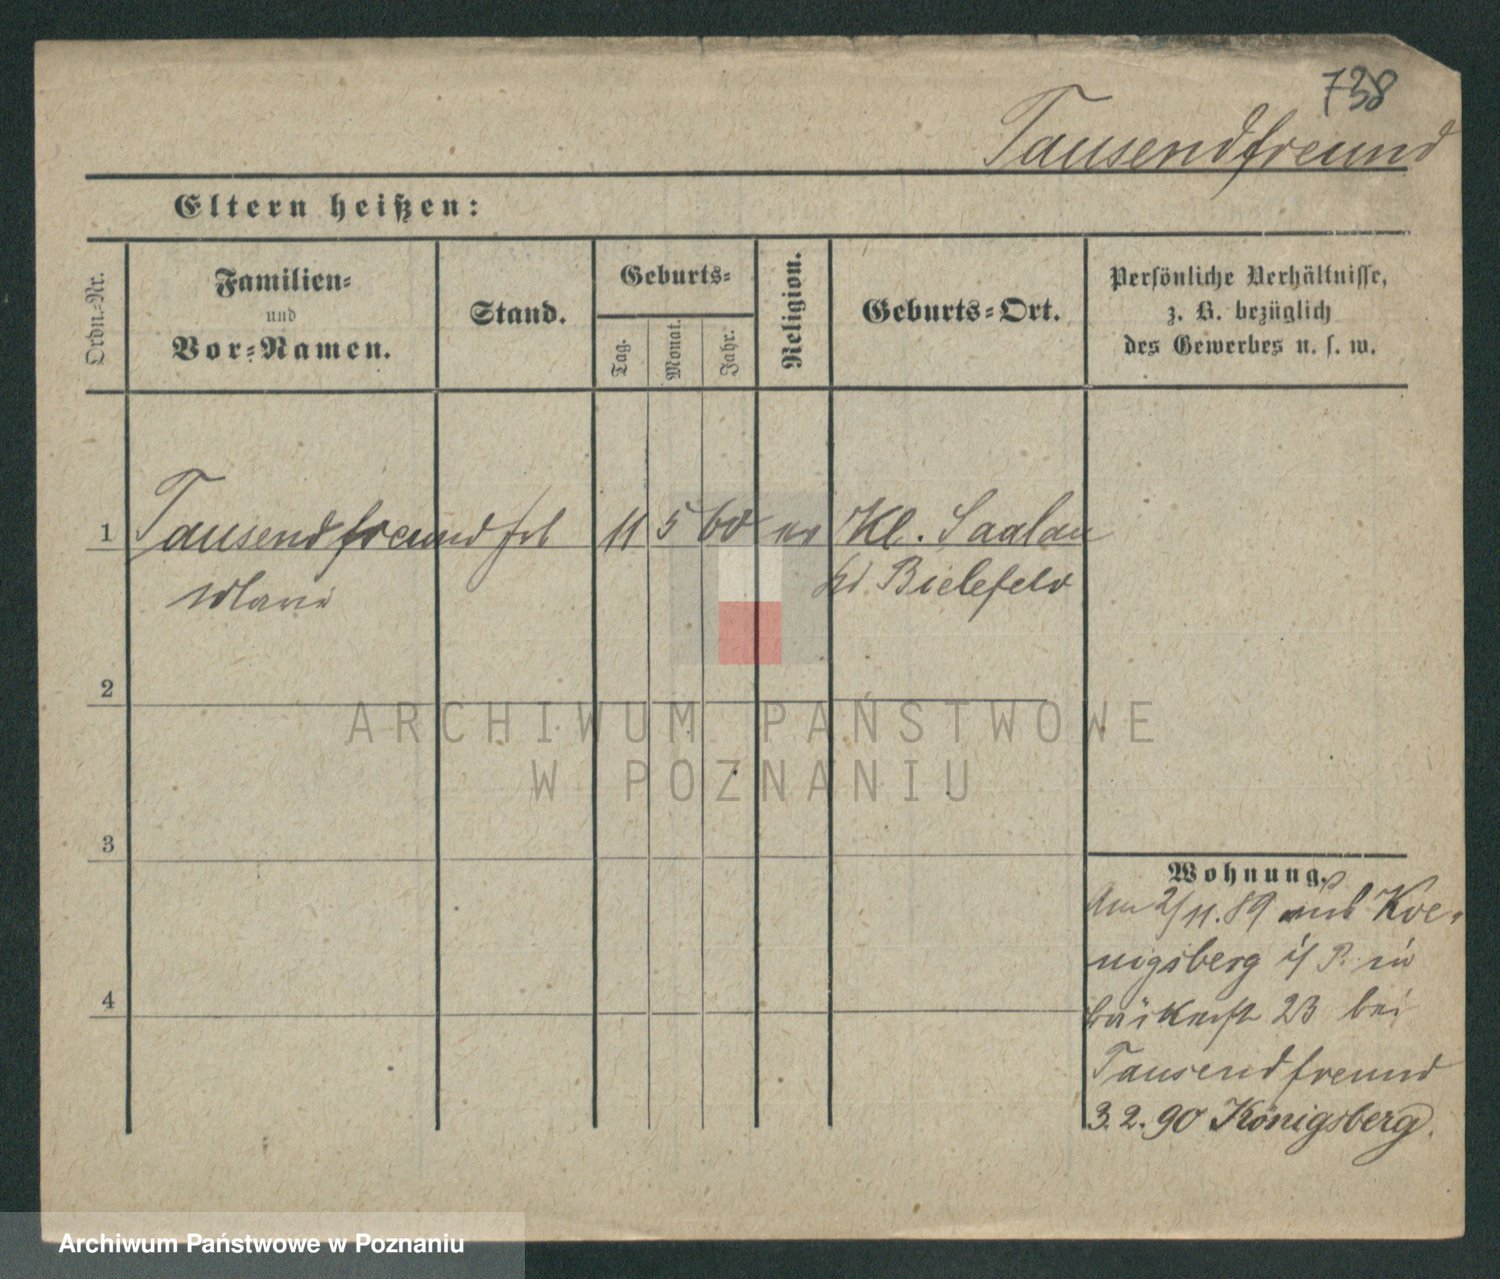 738
Tausendfreund
Eltern heißen:
Ordn.-Nr.
Familien-
und
Vor-Namen.
Stand.
Geburts-
Tag.
Monat.
Jahr.
Religion.
Geburts-Ort.
Persönliche Verhältnisse,
z. B. bezüglich
des Gewerbes u. s. w.
1 Tausendfreund frl 11 5 60 ev Kl. Saalau
Marie
Bielefeld
2
ARCHIWUM PAŃSTWOWE
W POZNANIU
3
Wohnung.
Am 2/11. 89 aus Koe-
nigsberg i/ P. in
Bäckerstr 23 bei
4
Tausendfreund
3. 2. 90 Königsberg.
Archiwum Państwowe w Poznaniu